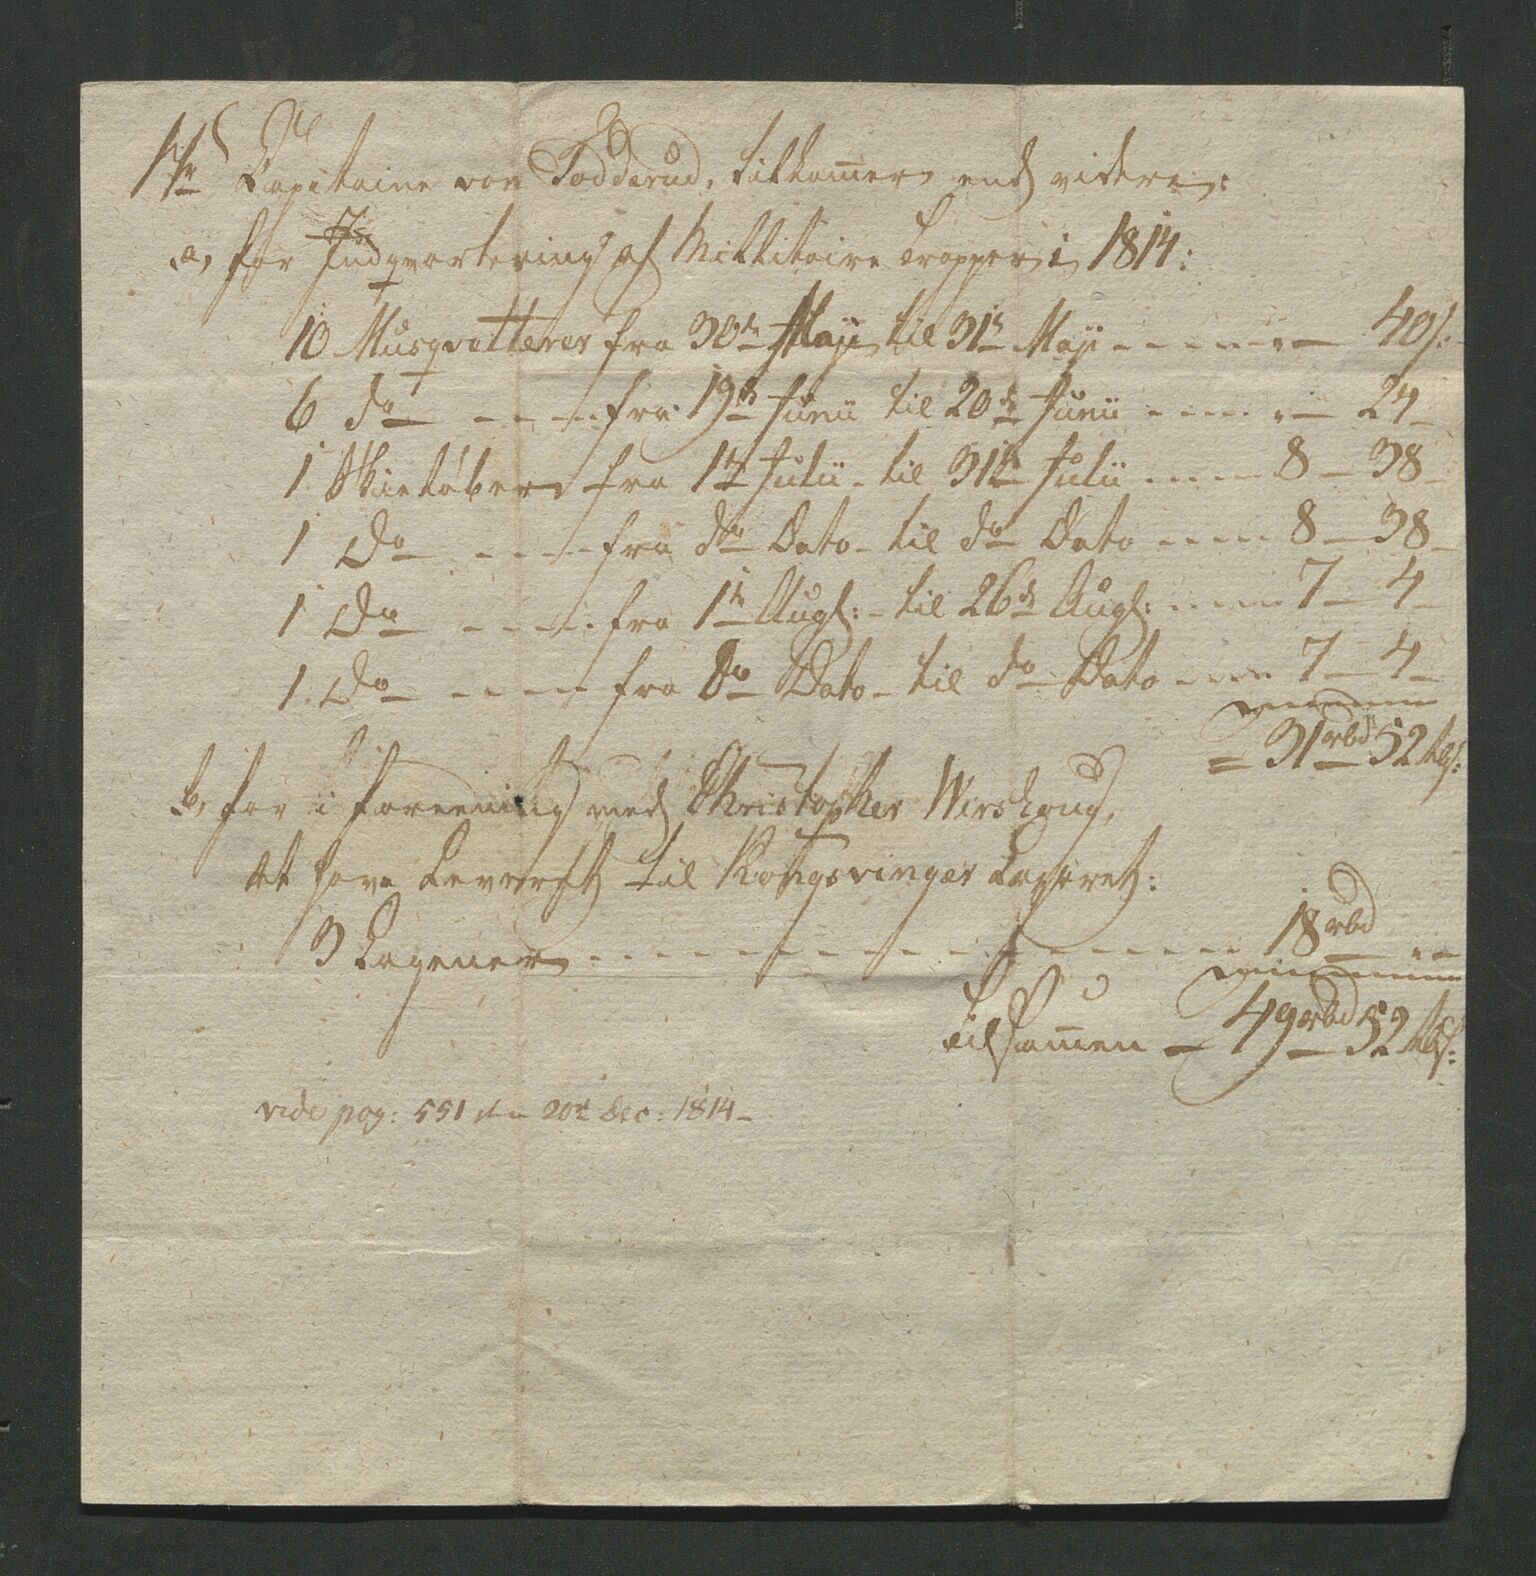 Hr Capitaine von Todderud, tilkommer endh videre:
a, for Indqvartering af Millitaire Tropper i 1814:
10 Musqvetterer fra 30te Maji til 31te Maji - - - - „ - 40 s:
6 do - - - - fra 19de Junii til 20de Junii - - - - „ - 24 -
1 Skieløber fra 1te Julii - til 31te Julii - - - - 8 - 38 -
1 Do - - - - fra do Dato - til do Dato - - - - 8 - 38 -
1 Do - - - - fra 1te Augl: - til 26de Augl: - - - - 7 - 4 -
1 Do - - - - fra Do Dato - til do Dato - - - - 7 - 4 -
= 31 rbd 52 s:
b, for i foreening med Christopher Wershoug,
at have Leverth til Kongsvinger Lazareth:
3 Lagener - - - - - - - - - - - - 18 rbd - „ -
Tilsammen - 49 rbd 52 s:
vide pag: 551 den 20de Dec: 1814 -